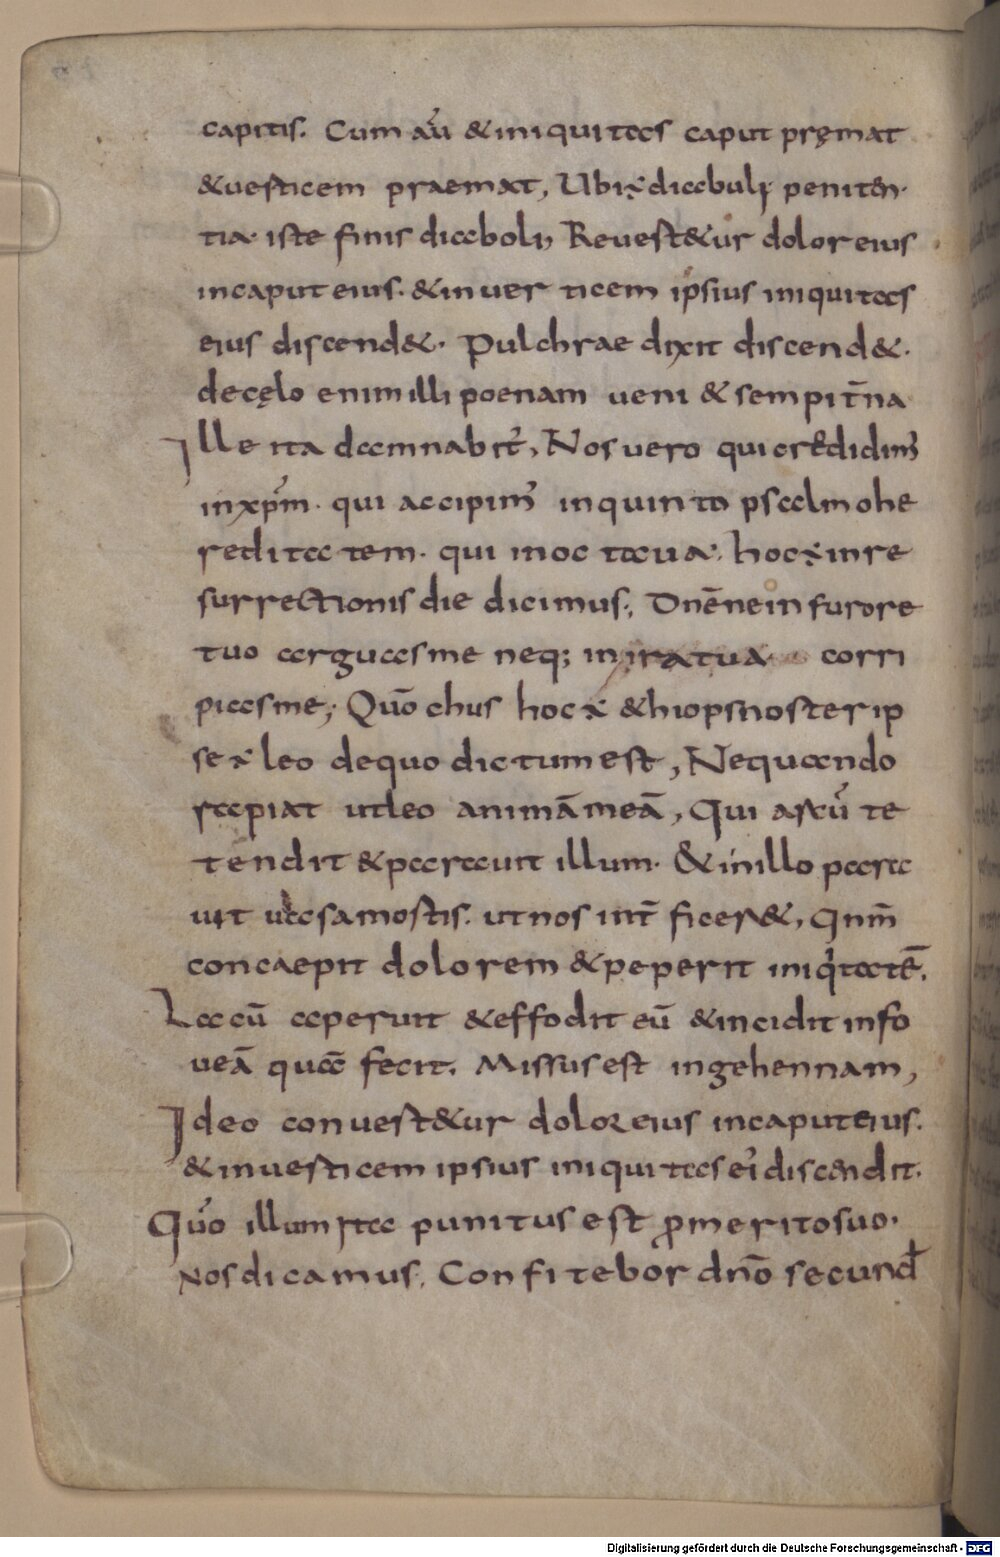 capitis. Cum aū & iniquitas caput pręmat
& uesticem praemat, Ubi ẋ diabuli penitēn·
tia· iste finis diaboli, Reuest&ur dolor eius
in caput eius. & in uer ticem ipsius iniquitas
eius discend&. Pulchrae dixit discend&.
de cęlo enim illi poenam ueni & sempit̄na
Ille ita damnabit᷑, Nos uero qui credidim᷑
in xp̄m. qui accipim᷑ in quinto psalmo he
reditatem. qui in octaua, hoc ẋ in re
surrectionis die dicimus; Dn̄e ne in furore
tuo arguas me neq; in ira tua corri
pias me; Quō chus hoc ẋ & hiops noster ip
se ẋ leo de quo dictum est, Nequando
rapiat ut leo animā meā, Qui arcū te
tendit & parauit illum. & in illo para
uit uasa mostis. ut nos int̄ficer&, Qnm̄
concaepit dolorem & peperit iniq᷑tatē.
Lacū aperuit & effodit eū & incidit in fo
ueā quā fecit. Missus est in gehennam,
Ideo conuest&ur dolor eius in caput eius.
& in uesticem ipsius iniquitas ei᷑ discendit.
Quō illum ita punitus est ꝓ merito suo.
Nos dicamus, Confitebor dn̄o secund̄
Digitalisierung gefördert durch die Deutsche Forschungsgemeinschaft - DFG